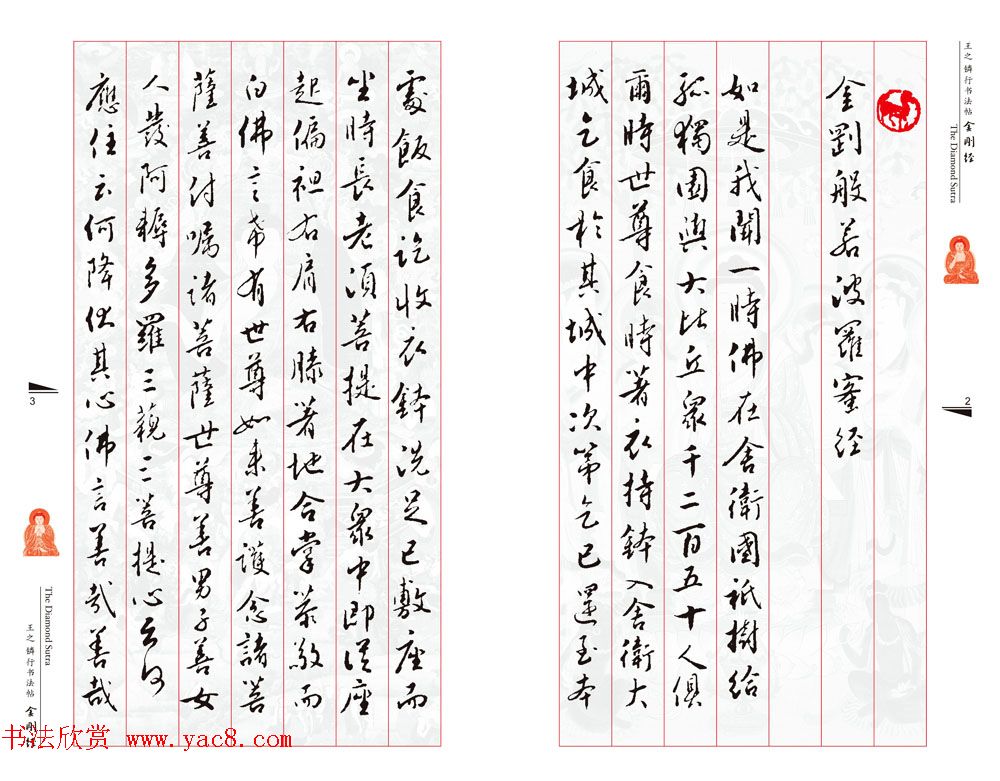 王之鏻行书法帖 金刚经
The Diamond Sutra
2
金剛般若波羅蜜经
如是我聞一時佛在舍衛國祇樹給
孤獨園與大比丘眾千二百五十人俱
爾時世尊食時著衣持鉢入舍衛大
城乞食於其城中次第乞已還至本
處飯食訖收衣鉢洗足已敷座而
坐時長老須菩提在大眾中即從座
起偏袒右肩右膝著地合掌恭敬而
白佛言希有世尊如来善護念諸菩
薩善付嘱诸菩薩世尊善男子善女
人發阿耨多羅三藐三菩提心云何
應住云何降伏其心佛言善哉善哉
3
The Diamond Sutra
王之鏻行书法帖 金刚经
书法欣赏 www.yac8.com